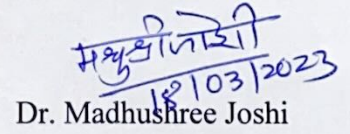 मधुश्री जोशी
18/03/2023
Dr. Madhushree Joshi